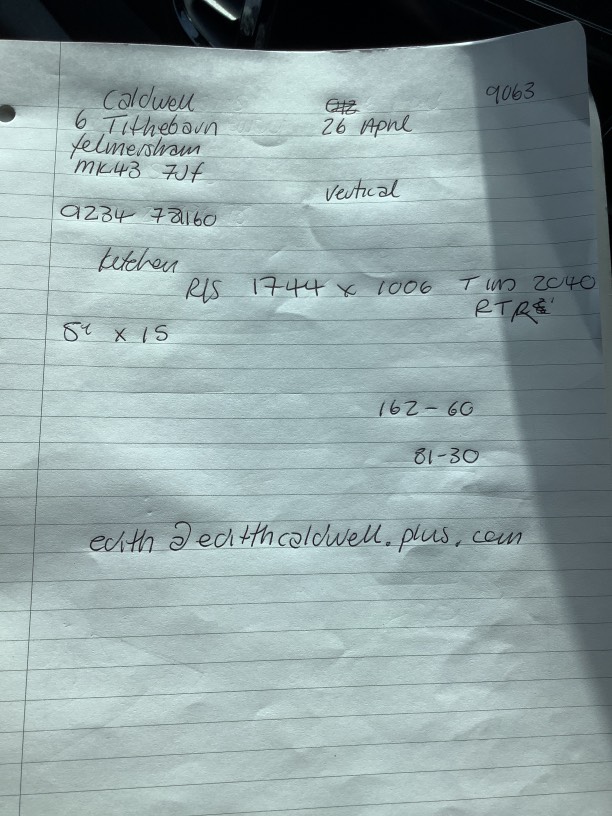 Caldwell
9063
6 Tithebarn
26 April
Felmersham
MK43 7JF
Vertical
Kitchen
R/S 1744 x 1006 T 2040
RTR
5" x 15
162-60
81-30
edith@edithcaldwell.plus.com